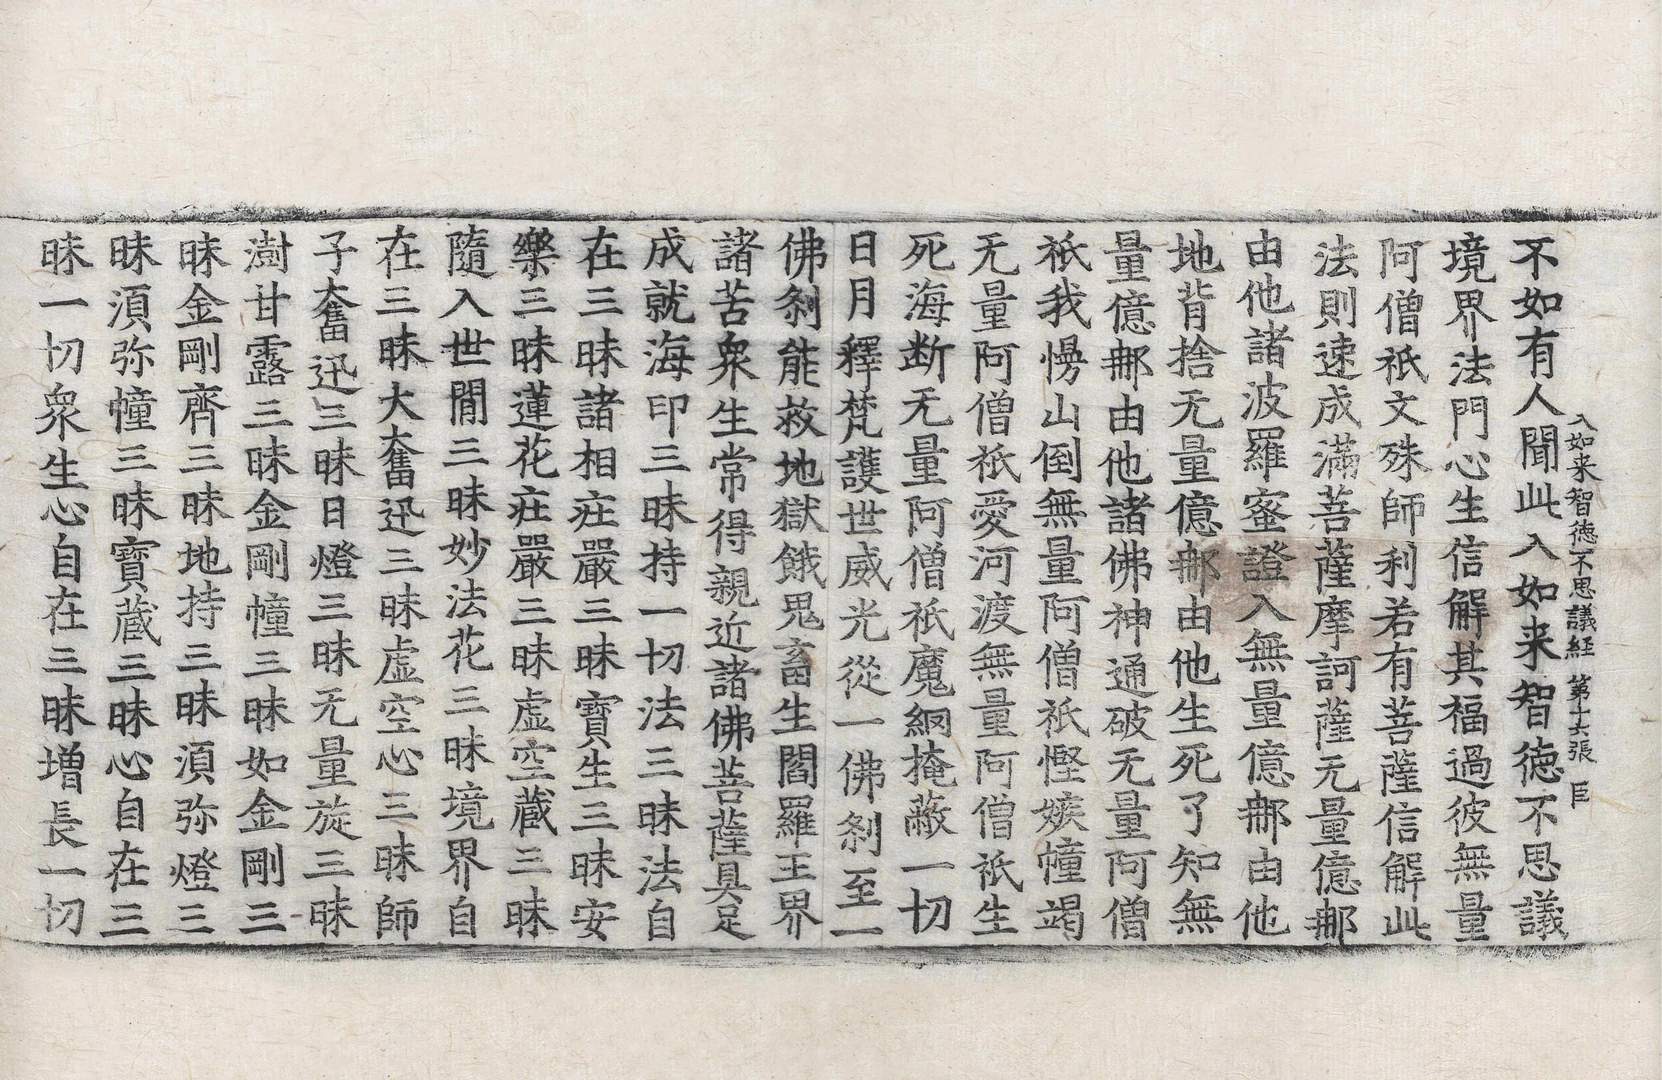 入如来智德不思議経 第十六張 臣
不如有人聞此入如来智德不思議
境界法門心生信解其福過彼無量
阿僧祇文殊師利若有菩薩信解此
法則速成滿菩薩摩訶薩无量億那
由他諸波羅蜜證入無量億那由他
地背捨无量億那由他生死了知無
量億那由他諸佛神通破无量阿僧
祇我慢山倒無量阿僧祇慳嫉幢竭
无量阿僧祇愛河渡無量阿僧祇生
死海断无量阿僧祇魔網掩蔽一切
日月釋梵護世威光從一佛刹至一
佛刹能救地獄餓鬼畜生閻羅王界
諸苦衆生常得親近諸佛菩薩具足
成就海印三昧持一切法三昧法自
在三昧諸相庄嚴三昧寶生三昧安
樂三昧蓮花庄嚴三昧虚空蔵三昧
隨入世間三昧妙法花三昧境界自
在三昧大奮迅三昧虚空心三昧師
子奮迅三昧日燈三昧无量旋三昧
澍甘露三昧金剛幢三昧如金剛三
昧金剛齊三昧地持三昧湏弥燈三
昧湏弥幢三昧寶蔵三昧心自在三
昧一切衆生心自在三昧増長一切